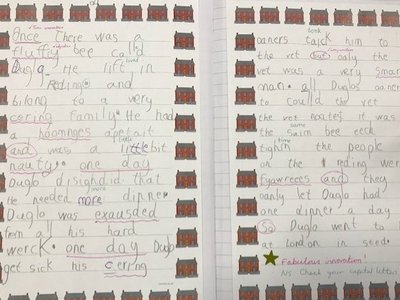 Once there was a
fluffy bee calld
Duglo. He lift in
Reding and
bilong to a very
cering family. He had
a hoomnges apetait
and was a little bit
nauty. one day
Duglo disighdid that
He needed more dinner.
Duglo was exausded
from all his hard
werck. one day Duglo
get sick his cering
oaners took him to
the vet but only the
vet was a very smar
man. all Duglos oaners
to could the vet
the vet notest it was
the same bee
time the people
on the reding wer
fyawreees and they
oanly let Duglo had
one dinner a day
So Duglo went to
at London in sted.
Fabulous innovation!
NS Check your capital letters